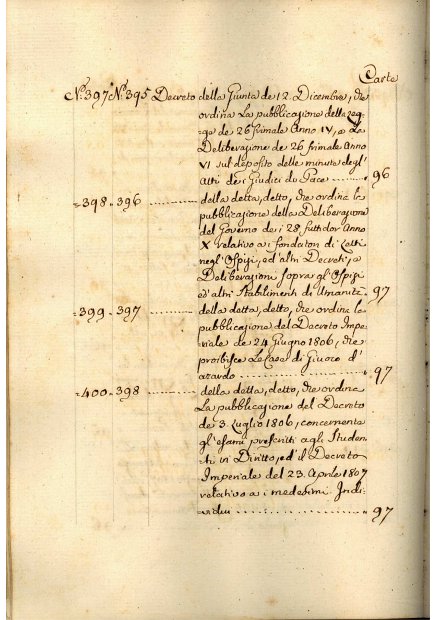 Carte
N.° 397 N.° 395 Decreto della Giunta de 12. Dicembre, che
ordina la pubblicazione della Leg-
ge de 26 frimale Anno IV, e La
Deliberazione de 26 frimale Anno
VI sul deposito delle minute degl'
Atti de i Giudici di Pace ......... " 96
" 398 - 396 ............ della detta, detto, che ordina la
pubblicazione della Deliberazione
del Governo de i 28 fruttidor Anno
X relativo a i fondatori di Letti
negl'Ospizi, ed'altri Decreti, e
Deliberazioni sopra gl'Ospizi
ed'altri Stabilimenti di Umanità " 97
" 399 - 397 ............ della detta, detto, che ordina la
pubblicazione del Decreto Impe-
riale de 24 Giugno 1806, che
proibisce Le Case di Giuoco d'
azardo ......................... " 97
" 400 - 398 ............ della detta, detto, che ordina
La pubblicazione del Decreto
de 3 Luglio 1806, concernente
gl'esami prescritti agli Studen-
ti in Diritto, ed il Decreto
Imperiale del 23. Aprile 1807
relativo a i medesimi Indi-
vidui ......................... " 97